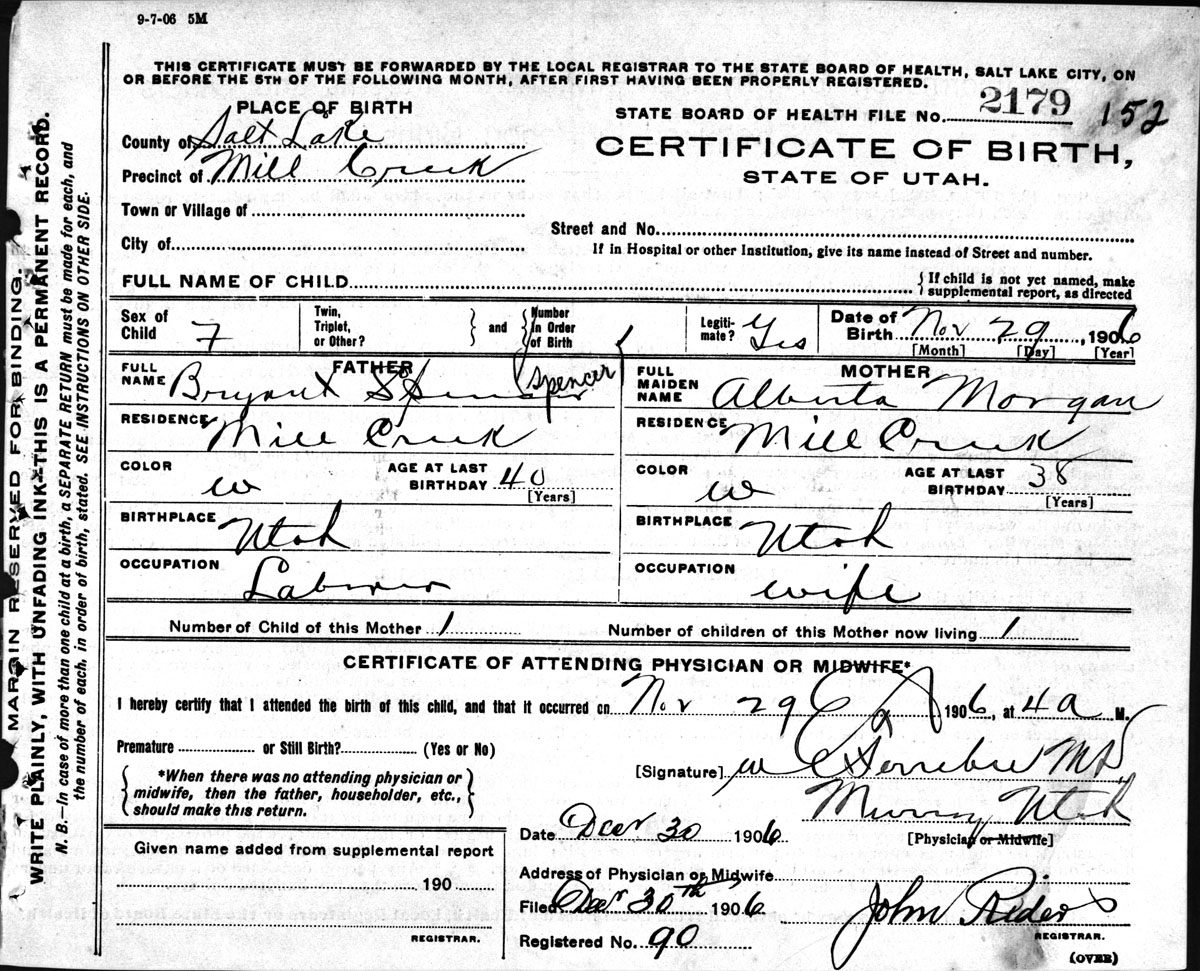 9-7-06 5M
THIS CERTIFICATE MUST BE FORWARDED BY THE LOCAL REGISTRAR TO THE STATE BOARD OF HEALTH, SALT LAKE CITY, ON
OR BEFORE THE 5TH OF THE FOLLOWING MONTH, AFTER FIRST HAVING BEEN PROPERLY REGISTERED.
PLACE OF BIRTH
County of Salt Lake
Precinct of Mill Creek
Town or Village of
City of
STATE BOARD OF HEALTH FILE No. 2179 152
CERTIFICATE OF BIRTH,
STATE OF UTAH.
Street and No.
If in Hospital or other Institution, give its name instead of Street and number.
FULL NAME OF CHILD
{ If child is not yet named, make
supplemental report, as directed
Sex of
Child F
Twin,
Triplet,
or Other?
} and {
Number
in Order
of Birth 1
Legiti-
mate? Yes
Date of
Birth Nov 29, 1906
[Month] [Day] [Year]
FATHER
FULL
NAME Bryant Spencer (Spencer)
RESIDENCE Mill Creek
COLOR w
AGE AT LAST
BIRTHDAY 40
[Years]
BIRTHPLACE Utah
OCCUPATION Laborer
MOTHER
FULL
MAIDEN
NAME Alberta Morgan
RESIDENCE Mill Creek
COLOR w
AGE AT LAST
BIRTHDAY 38
[Years]
BIRTHPLACE Utah
OCCUPATION wife
Number of Child of this Mother 1 Number of children of this Mother now living 1
CERTIFICATE OF ATTENDING PHYSICIAN OR MIDWIFE*
I hereby certify that I attended the birth of this child, and that it occurred on Nov 29 1906, at 4 a M.
Premature or Still Birth? (Yes or No)
{ *When there was no attending physician or
midwife, then the father, householder, etc.,
should make this return. }
[Signature] M D
Murray Utah
[Physician or Midwife]
Date Dec 30 1906
Address of Physician or Midwife
Filed Dec 30th 1906
John Rider
REGISTRAR.
Registered No. 90
(OVER)
Given name added from supplemental report
190
REGISTRAR.
MARGIN RESERVED FOR BINDING.
WRITE PLAINLY, WITH UNFADING INK—THIS IS A PERMANENT RECORD.
N. B.—In case of more than one child at a birth, a SEPARATE RETURN must be made for each, and
the number of each, in order of birth, stated. SEE INSTRUCTIONS ON OTHER SIDE.